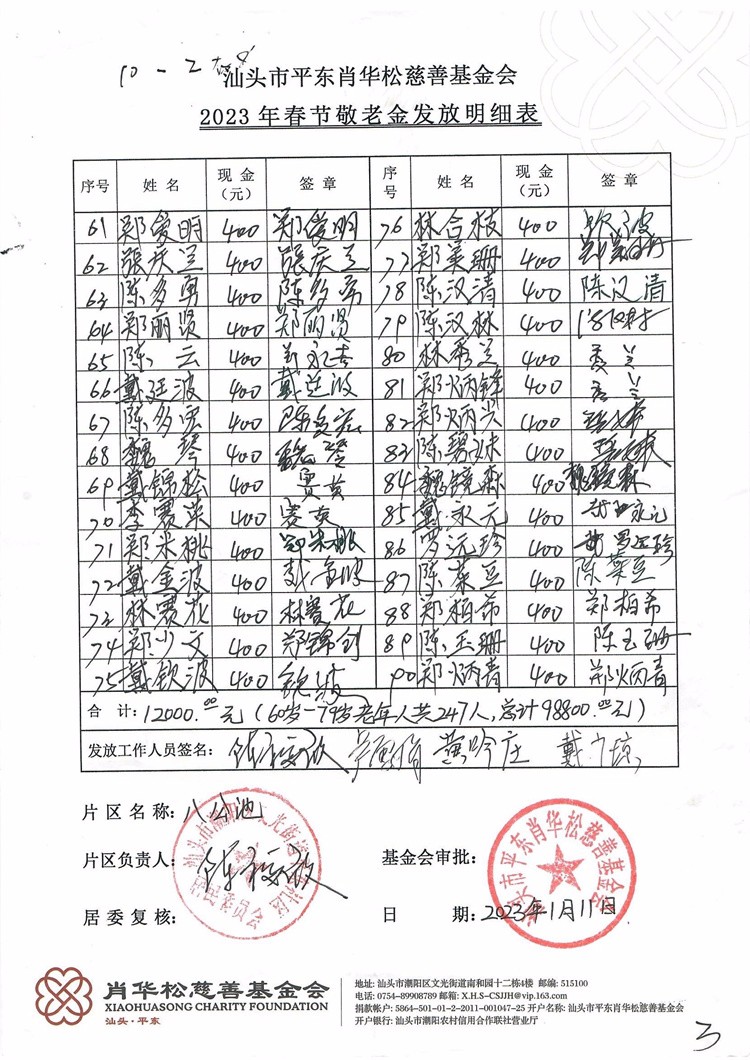 10-2
汕头市平东肖华松慈善基金会
2023年春节敬老金发放明细表
序号 姓名 现金（元） 签章 序号 姓名 现金（元） 签章
61 郑俊明 400 郑俊明 76 林合枝 400
62 张庆兰 400 张庆兰 77 郑美珊 400 郑美珊
63 陈多勇 400 陈多勇 78 陈汉清 400 陈汉清
64 郑丽贤 400 郑丽贤 79 陈汉林 400
65 陈云 400 80 林秀兰 400
66 戴廷波 400 戴廷波 81 郑炳锋 400
67 陈多宏 400 陈多宏 82 郑炳兴 400
68 魏琴 400 83 陈惜妹 400
69 戴锦松 400 84 魏镜森 400 魏镜森
70 李赛英 400 赛英 85 戴永元 400
71 郑米桃 400 郑米桃 86 罗远珍 400 罗远珍
72 戴金波 400 戴金波 87 陈菜豆 400 陈菜豆
73 林赛花 400 林赛花 88 郑柏希 400 郑柏希
74 郑少文 400 郑锦创 89 陈玉珊 400 陈玉珊
75 戴钦波 400 90 郑炳青 400 郑炳青
合计:12000.00元（60岁-79岁老年人共247人,总计98800.00元）
发放工作人员签名: 黄吟庄
片区名称:八分池
片区负责人:
基金会审批:
居委复核:
日期:2023年1月11日
汕头市平东肖华松慈善基金会
居民委员会
肖华松慈善基金会
XIAOHUASONG CHARITY FOUNDATION
汕头·平东
地址: 汕头市潮阳区文光街道南和园十二栋4楼 邮编: 515100
电话: 0754-89908789 邮箱: X.H.S-CSJJH@vip.163.com
捐款帐户: 5864-501-01-2-2011-001047-25 开户名称: 汕头市平东肖华松慈善基金会
开户银行: 汕头市潮阳农村信用合作联社营业厅
3